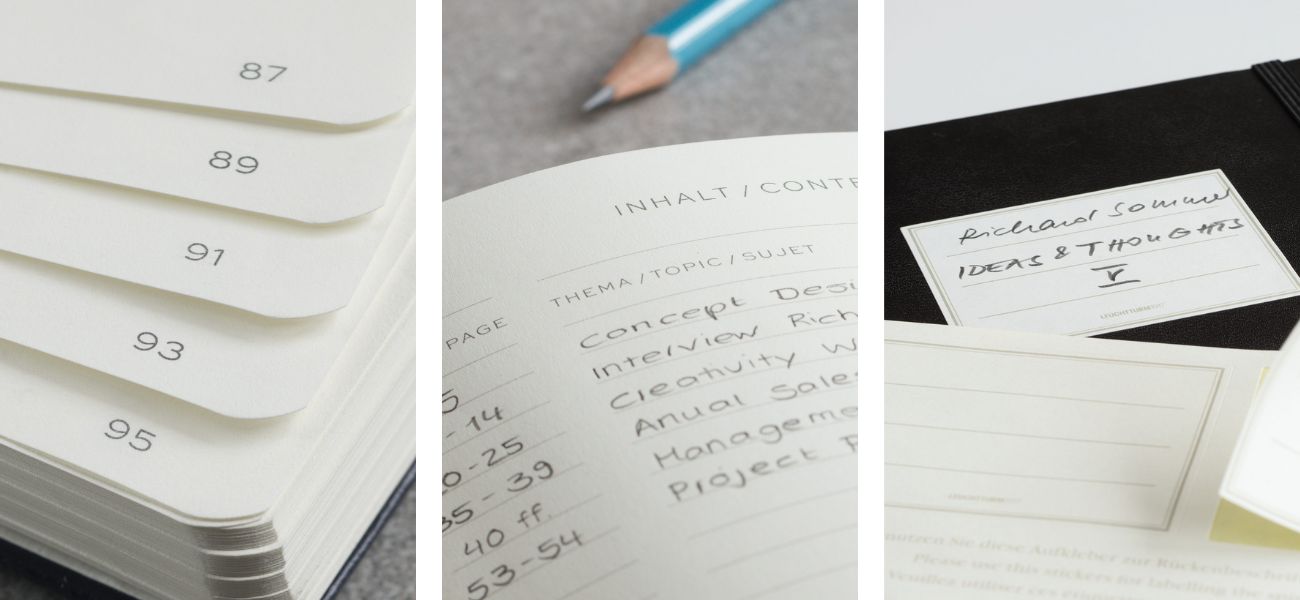 87
89
91
93
95
INHALT / CONTE
THEMA / TOPIC / SUJET
PAGE
Concept Desi
Interview Rich
Creativity W
Anual Sales
Manageme
Project
5
- 14
0-25
35 - 39
40 ff.
53-54
Richard Sommer
IDEAS & THOUGHTS
V
LEUCHTTURM
LEUCHTTURM
nutzen Sie diese Aufkleber zur Rückenbeschrif
Please use this stickers for labelling the spi
Veuillez utiliser ces étiquettes